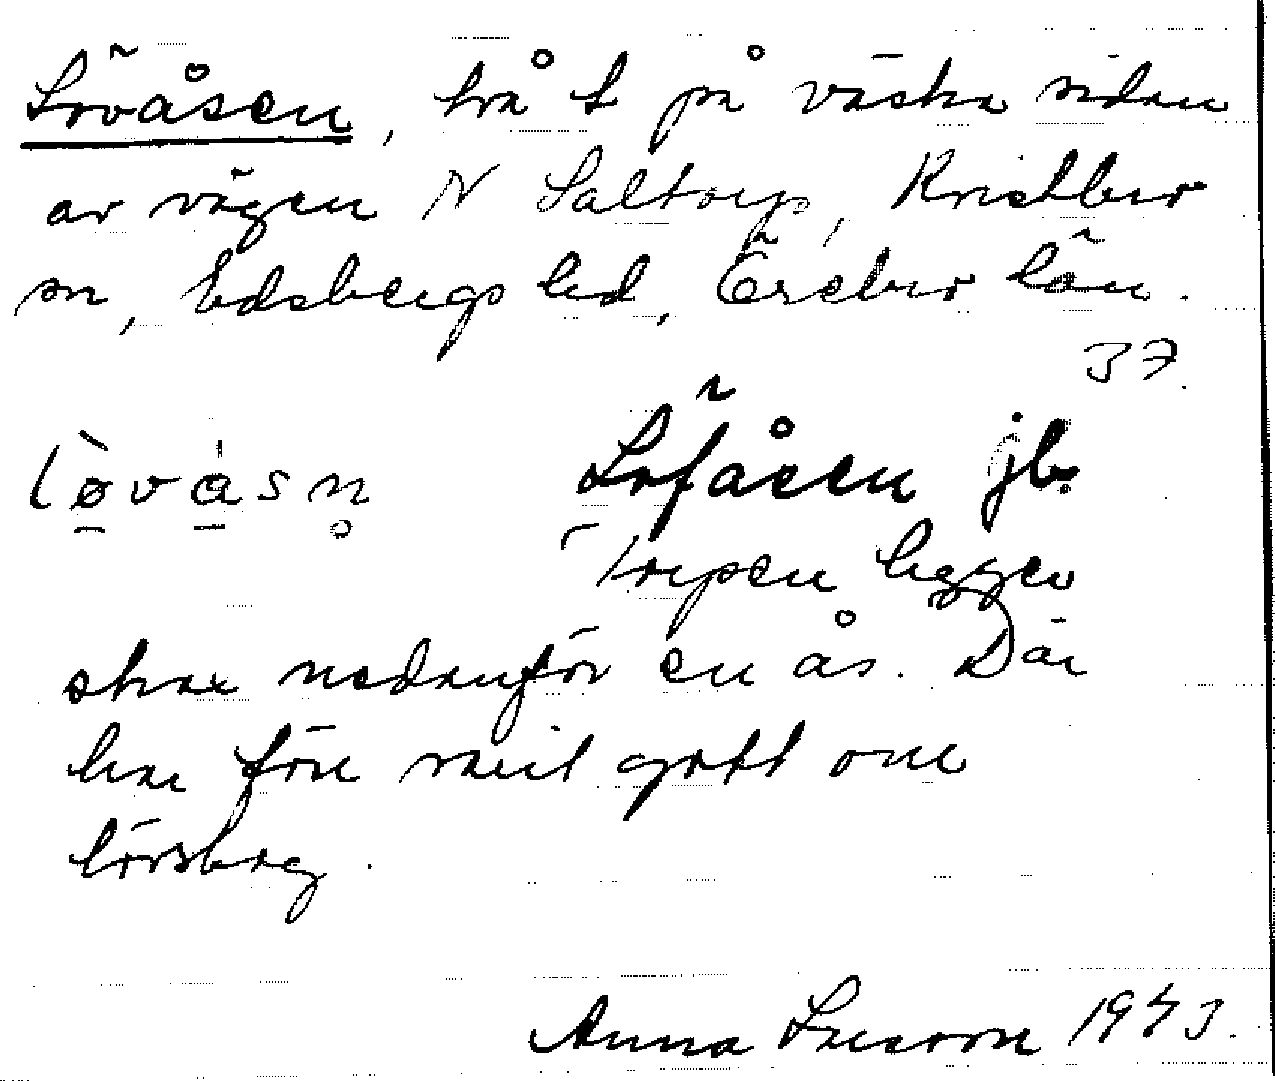 Lövåsen, två t på västra sidan
av vägen N Saltorp, Knistbro
sn, Edsbergs hd, Örebro län.
37.
lø̀vásn̥ Löfåsen jb.
Torpen ligger
strax nedanför en ås. Där
har förr varit gott om
lövskog.
Anna Larsson 1943.